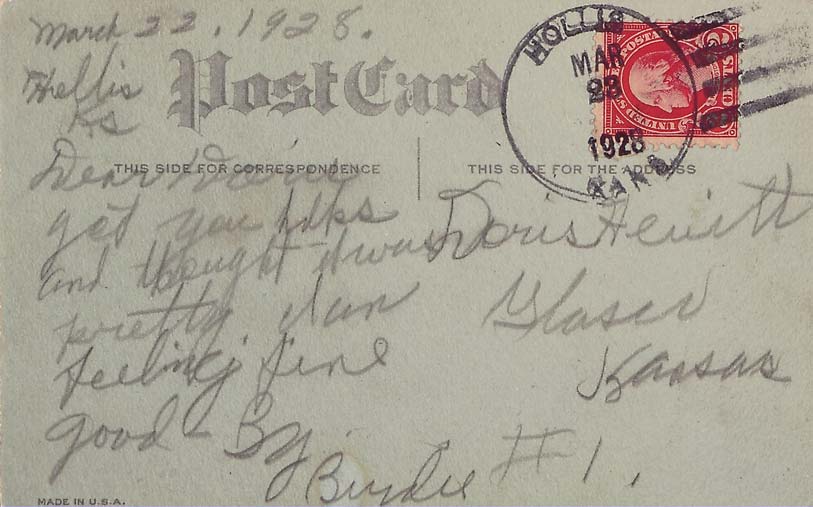 March 22, 1928.
Hollis
Ks
Post Card
THIS SIDE FOR CORRESPONDENCE
Dear Doris
got you
and thought it was
pretty. I am
feeling fine
good-By
Birdie
MADE IN U.S.A.
HOLLIS
MAR
23
1928
KANS
UNITED STATES POSTAGE
2 CENTS 2
THIS SIDE FOR THE ADDRESS
Doris Hewitt
Glasco
Kansas
#1.